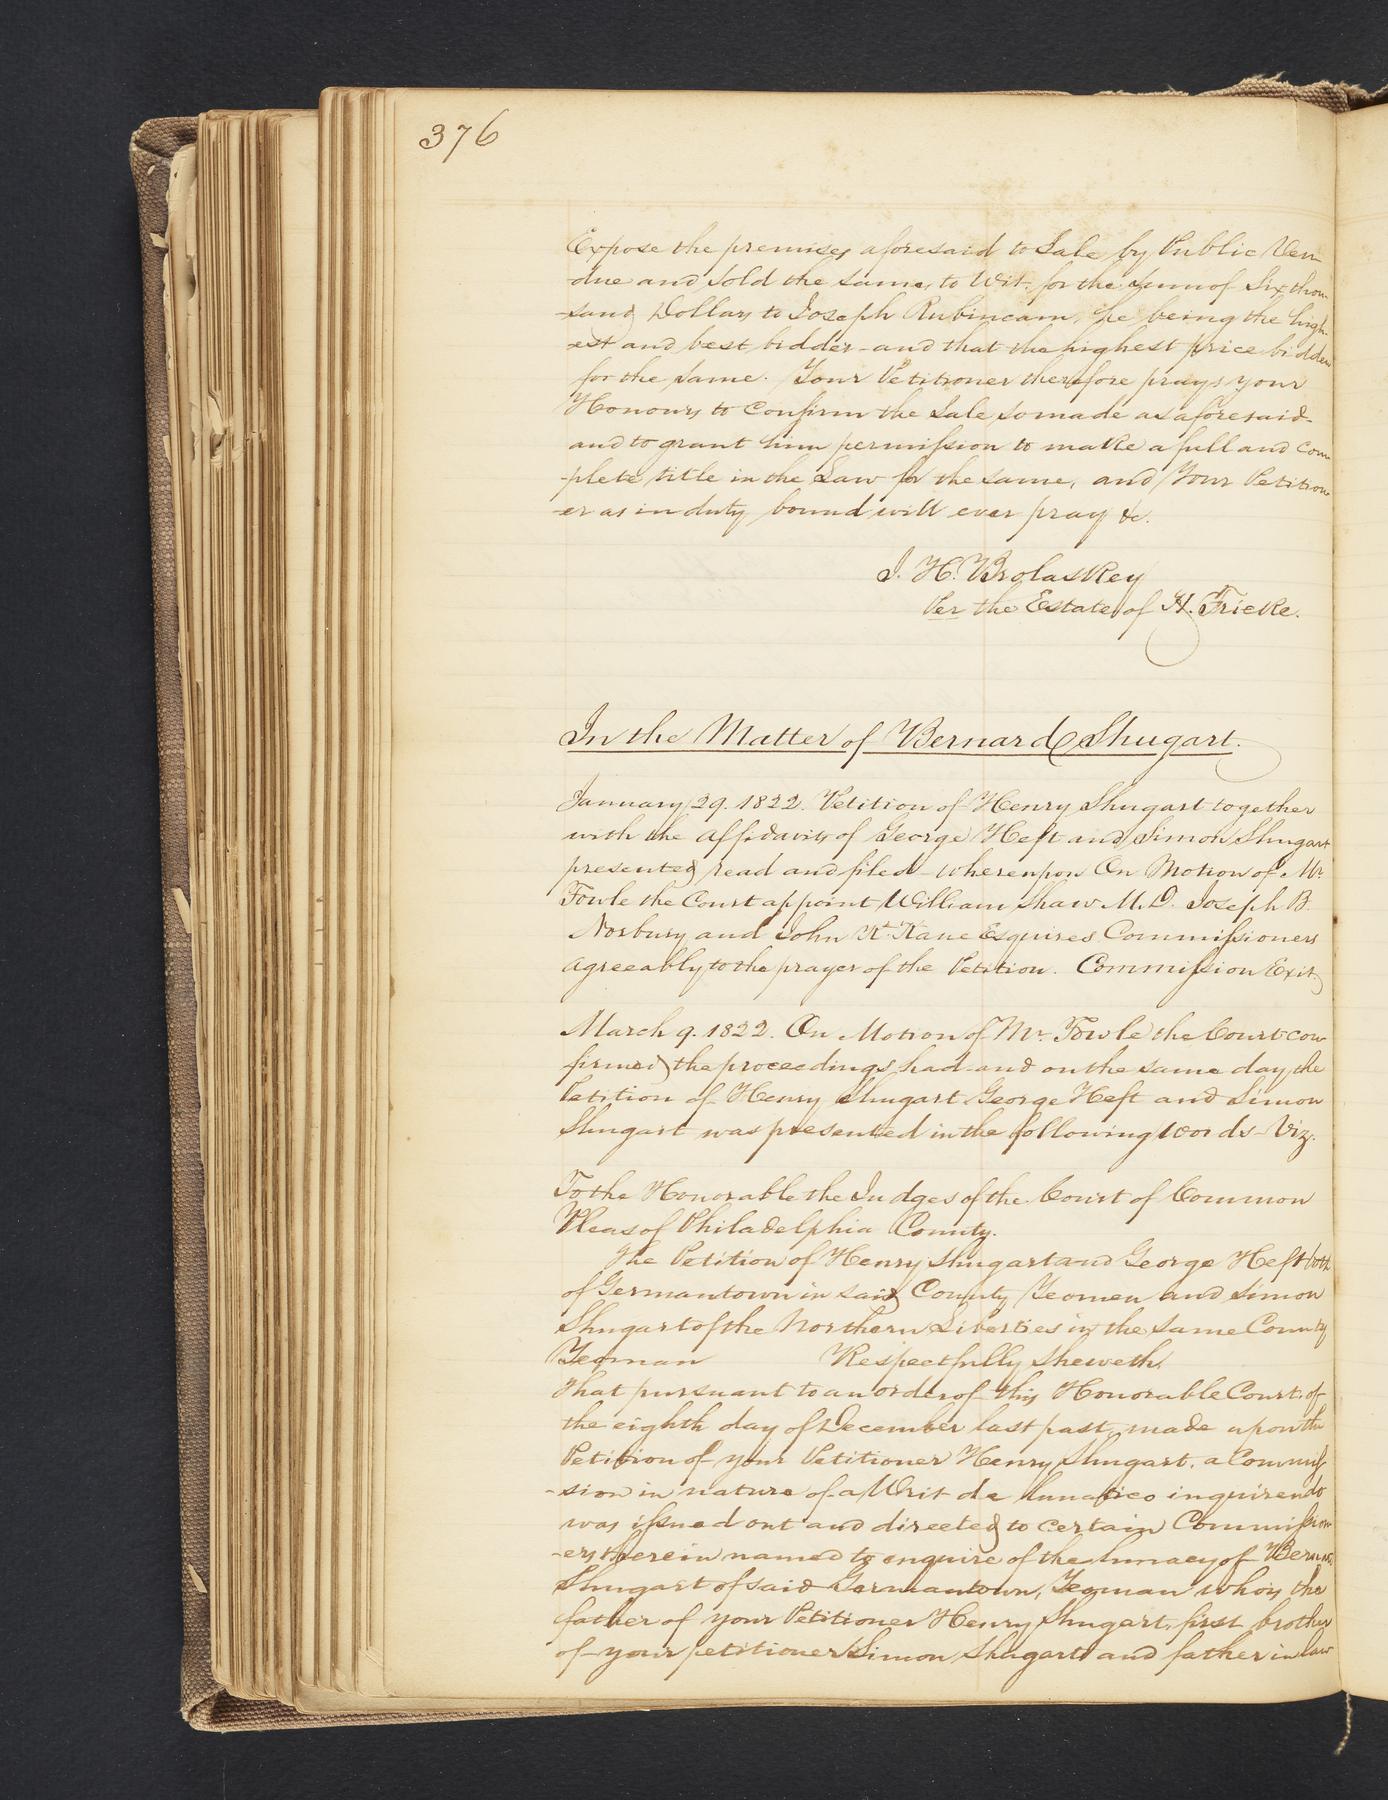 376
Expose the premises aforesaid to Sale by Public Ven-
due and sold the same, to Wit, for the sum of Six thou-
-sand Dollars to Joseph Rubincam, he being the high-
-est and best bidder - and that the highest price bidden
for the same. Your Petitioner therefore prays your
Honours to confirm the Sale so made as aforesaid-
and to grant him permission to make a full and com-
-plete title in the Law for the same, and Your Petition-
-er as in duty bound will ever pray &c.
J. H. Brolaskey
Per the Estate of H. Fricke.
In the Matter of Bernard Shugart.
January 29. 1822. Petition of Henry Shugart together
with the affidavits of George Heft and Simon Shugart
presented read and filed - whereupon On Motion of Mr.
Fowle the Court appoint William Shaw M.D. Joseph B.
Norbury and John K. Kane Esquires Commissioners
agreeably to the prayer of the Petition. Commission Exit
March 9. 1822. On Motion of Mr. Fowle the Court con-
firmed the proceedings had - and on the same day the
Petition of Henry Shugart George Heft and Simon
Shugart was presented in the following words - Viz.
To the Honorable the Judges of the Court of Common
Pleas of Philadelphia County.
The Petition of Henry Shugart and George Heft both
of Germantown in said County Yeomen and Simon
Shugart of the Northern Liberties in the same County
Yeoman Respectfully sheweth.
That pursuant to an order of this Honorable Court of
the eighth day of December last past, made upon the
Petition of your Petitioner Henry Shugart, a Commis-
-sion in nature of a Writ de lunatico inquirendo
was issued out and directed to certain Commission-
-ers therein named to enquire of the lunacy of Bernard
Shugart of said Germantown, Yeoman who is the
father of your Petitioner Henry Shugart, first brother
of your petitioner Simon Shugart and father in law